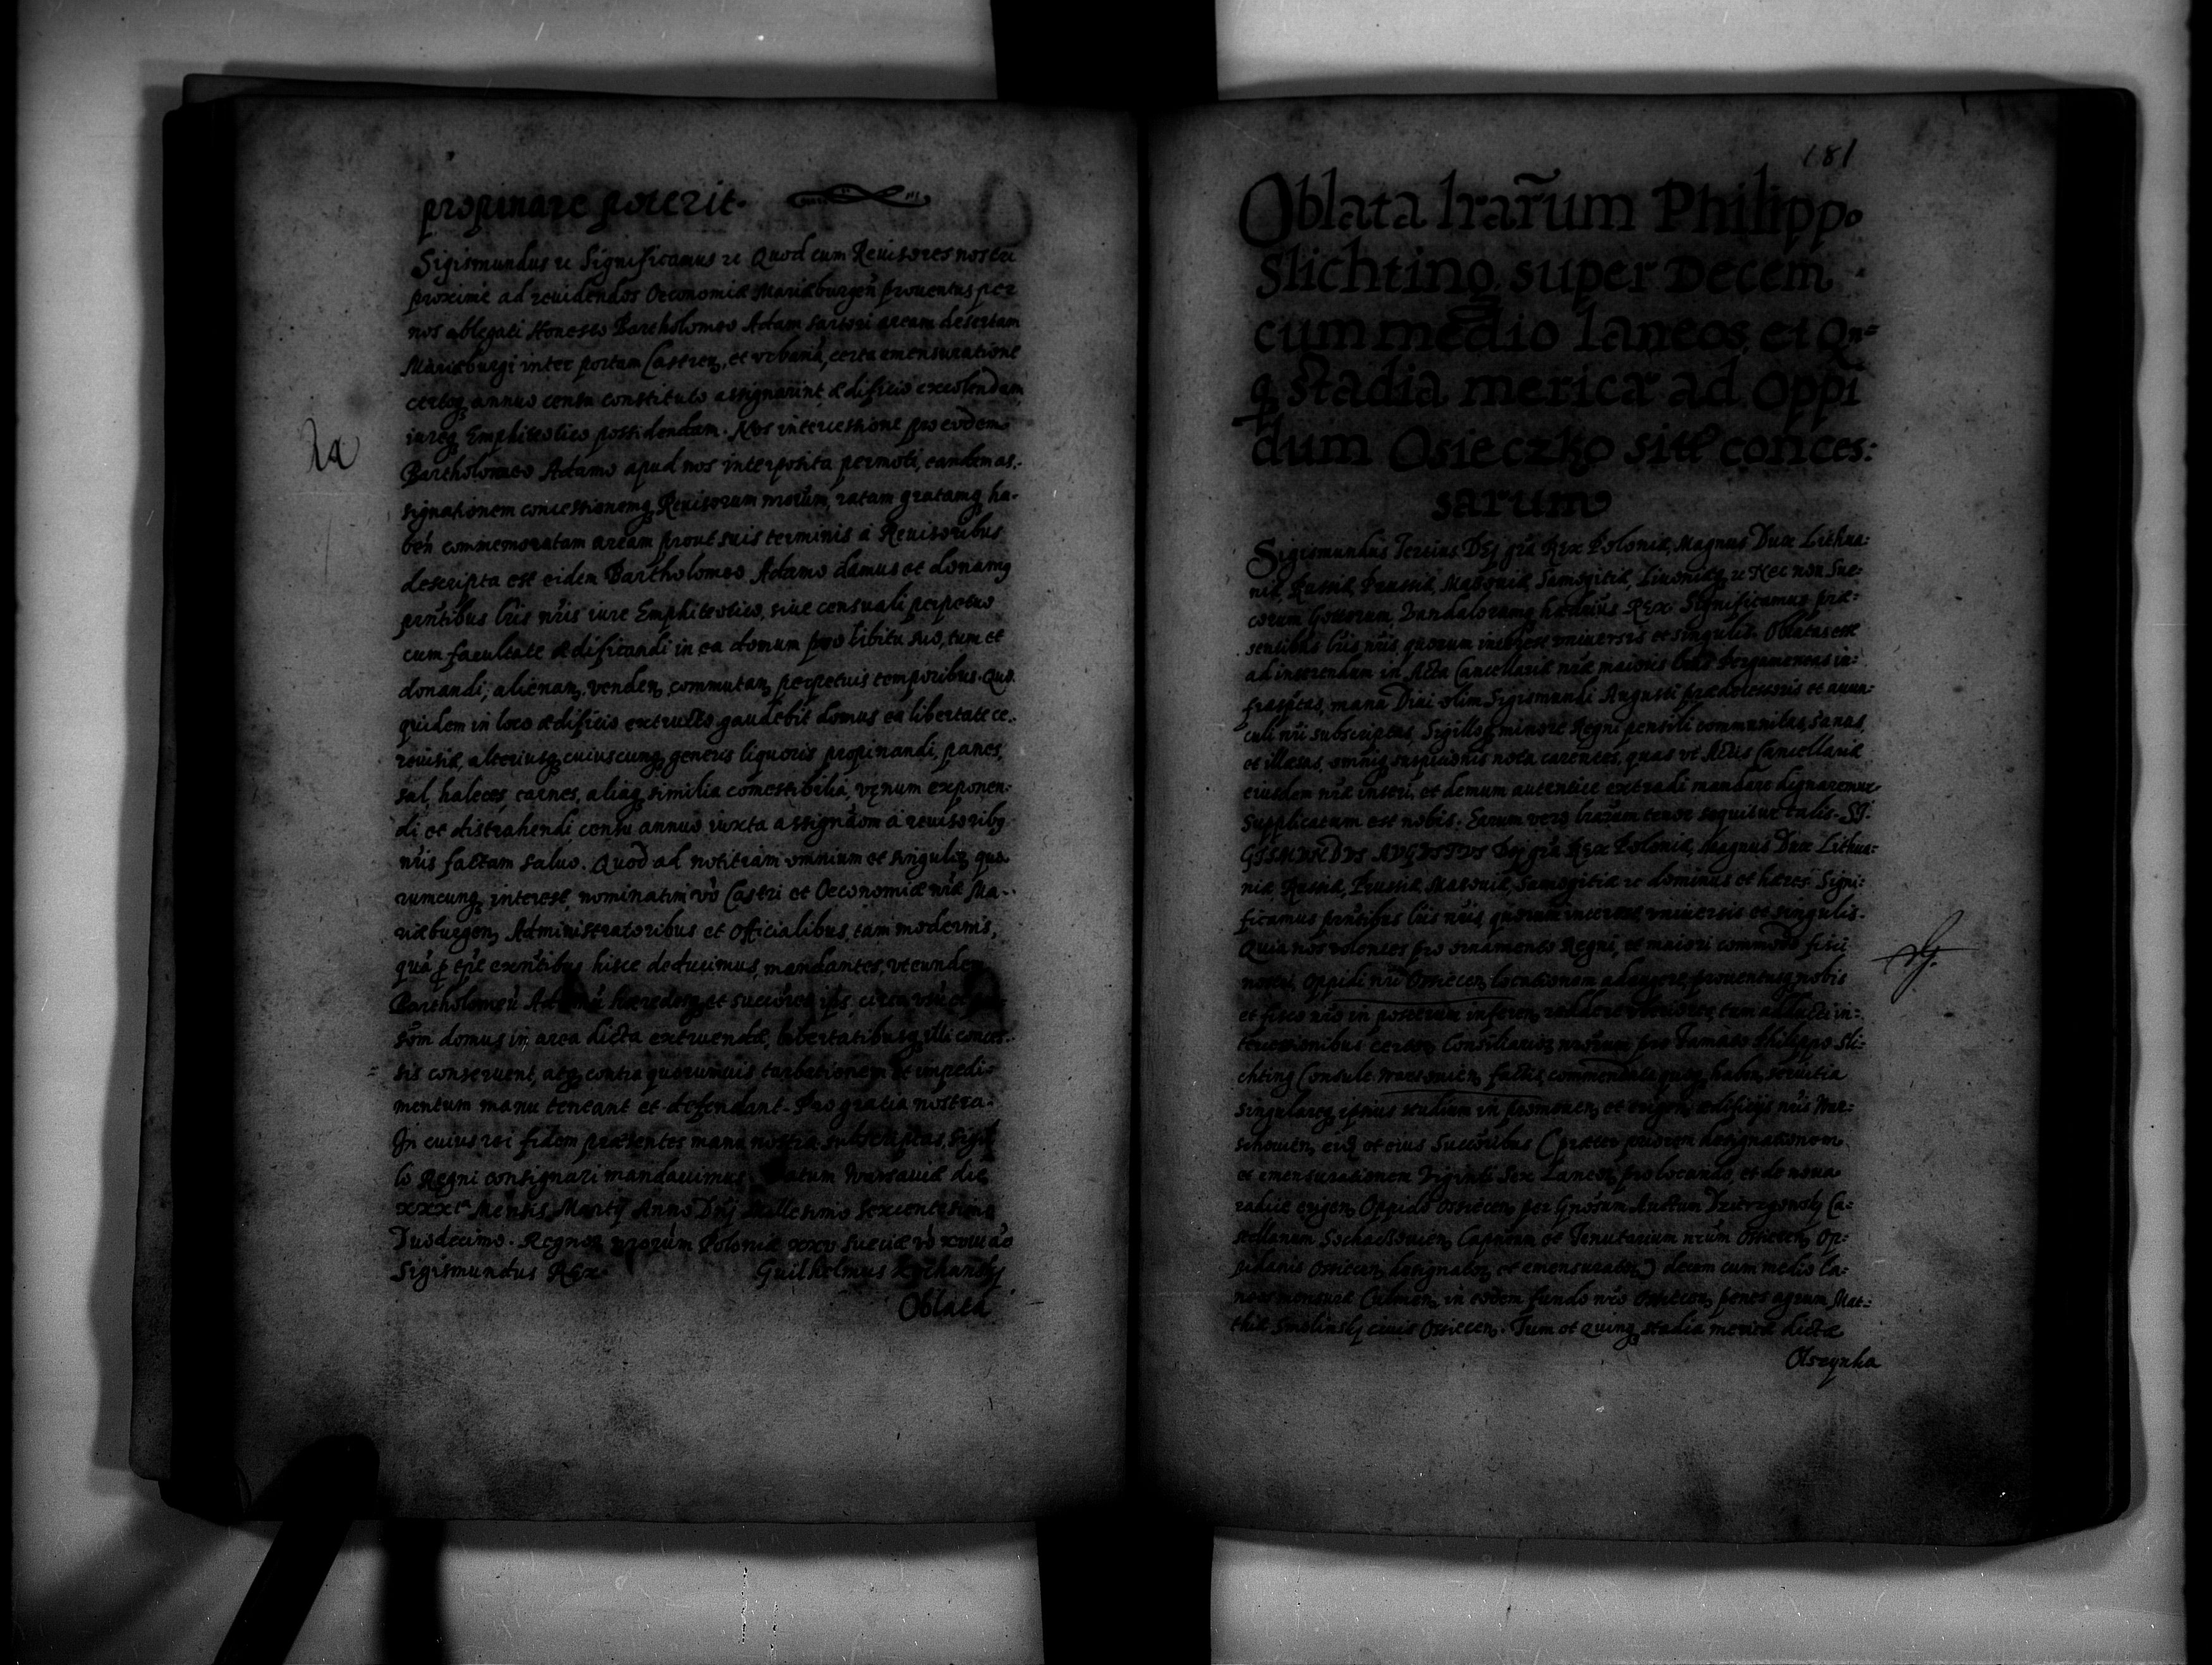 propinare poterit.
Sigismundus etc Significamus etc Quod cum Reuisores nostri
proxime ad reuidendos Oeconomiæ Mariæburgeñ prouentus per
nos ablegati Honesto Bartholomeo Adam sartori aream desertam
Mariæburgi inter portam Castreñ, et vrbanã, certa emensuratione
certoq annuo censu constituto assignarint ædificio excolendam
iureq Emphiteotico possidendam. Nos intercessione pro eodem
Bartholomeo Adamo apud nos interposita permoti, eandem as-
signationem concessionemq Reuisorum nrõrum, ratam gratamq ha-
beñ commemoratam aream prout suis terminis a Reuisoribus
descripta est eidem Bartholomeo Adamo damus et donamq
pñtibus lris nris iure Emphiteotico, siue censuali perpetuo
cum facultate ædificandi in ea domum pro libitu suo, tum et
donandi, alienan, venden, commutan, perpetuis temporibus. Quæ
quidem in loco ædificio extructo gaudebit domus ea libertate ce-
reuisiæ, alteriusq cuiuscunq generis liquoris propinandi, panes,
sal, haleces, carnes, aliaq similia comestibilia, vęnum exponen-
di et distrahendi censu annuo iuxta assignãom a reuisoribq
nris factam saluo. Quod ad notitiam omnium et singuloꝝ quo-
rumcunq interest, nominatim vo Castri et Oeconomiæ nræ Ma-
riæburgeñ, Administratoribus et Officialibus, tam modernis,
quã p tpe exñtibus hisce deducimus, mandantes, vt eundem
Bartholomeũ Adamũ hæredesq et succõres ips, circa vsũ et
sõm domus in area dicta extruendæ, libertatibusq illi conces-
sis conseruent, atq contra quorumuis turbationem et impedi-
mentum manu teneant et defendant. Pro gratia nostra.
In cuius rei fidem præsentes manu nostra subscriptas, Sigil
lo Regni consignari mandauimus. Datum Warsauiæ die
XXXta Mensis Martij Anno Dnj Millesimo Sexcentesimo
Duodecimo. Regnoꝝ nrõrum Poloniæ xxv Sueciæ vo xviii ão
Sigismundus Rex Guilhelmus
Oblata
181
Oblata lrarũm Philippo
Slichting super Decem
cum medio laneos et Qn=
q stadia mericæ ad Oppi
dum Osieczko sitt conces:
sarum
Sigismundus Tertius Dej gra Rex Poloniæ, Magnus Dux Lithua:
niæ, Russiæ, Prussiæ, Masouiæ, Samogitiæ, Liuoniæq etc Nec non Sue:
corum Gottorum, Vandalorumq hæredrius Rex. Significamus præ:
sentibus lris nris, quorum interest vniuersis et singulis. Oblatas esse
ad inserendum in Acta Cancellariæ nræ maioris lras Pergameneas in:
frascptas, manu Diui olim Sigismundi Augusti prædecessoris et auun:
culi nri subscriptas, Sigilloq minore Regni pensili communitas, sanas,
et illæsas, omniq suspicionis nota carentes, quas vt Actis Cancellariæ
eiusdem nræ inseri, et demum autentice extradi mandare dignaremur
Supplicatum est nobis. Earum vero lrarum tenor sequitur talis. SI:
GISMVNDVS AVGVSTVS Dej gra Rex Poloniæ, Magnus Dux Lithua:
niæ Russiæ, Prussiæ, Masouiæ, Samogitiæ etc dominus et hæres Signi:
ficamus pñtibus lris nris, quorum interest vniuersis et singulis.
Quia nos volentes pro ornamento Regni, et maiori commodo fisci
nostri, Oppidi nri Ossiecen, locationem adaugere, prouentusq nobis
et fisco nro in posterum inferen, reddere vberiores, tum adducti in:
tercessionibus certoꝝ Consiliarioꝝ nrõrum pro Famato Philippo Sli:
chting Consule Warsouien, factis, commendataquæ haben, seruitia
singulareq ipsius studium in promouen, et erigen, ædificijs nris War:
schouien, eid et eius Succõribus (præter priorem designationem
et emensurationem Viginti Sex Laneoꝝ, pro locando, et de noua
radice erigen, Oppido Ossiecen, per Gnõsum Ca:
stellanum Sochaczouien, Capneum et Tenutarium nrũm Ossiecen, Op:
pidanis Ossiecen, designatoꝝ et emensuratoꝝ) decem cum medio la:
neos mensuræ Culmen, in eodem fundo nro Ossiecen, penes agrum Mat:
thiæ Smolinskj ciuis Ossiecen. Tum et quinq stadia mericæ dictæ
Olszynka